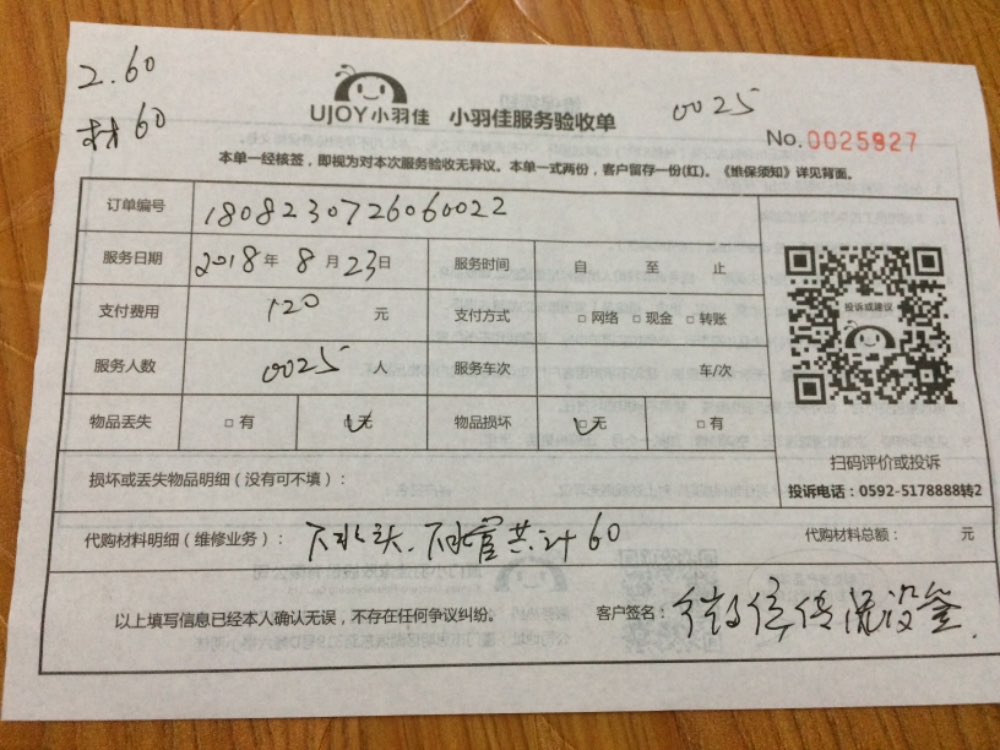 2.60
材60
UJOY小羽佳 小羽佳服务验收单
0025
No.0025827
本单一经核签，即视为对本次服务验收无异议。本单一式两份，客户留存一份(红)。《维保须知》详见背面。
订单编号 1808230726060022
服务日期 2018年 8月23日 服务时间 自 至 止
支付费用 120 元 支付方式 □ 网络 □ 现金 □ 转账
服务人数 0025 人 服务车次 车/次
物品丢失 □ 有 □ 无 物品损坏 □ 无 □ 有
投诉或建议
扫码评价或投诉
投诉电话：0592-5178888转2
损坏或丢失物品明细（没有可不填）：
代购材料明细（维修业务）： 下水头、下水管共计60 代购材料总额： 元
以上填写信息已经本人确认无误，不存在任何争议纠纷。 客户签名：